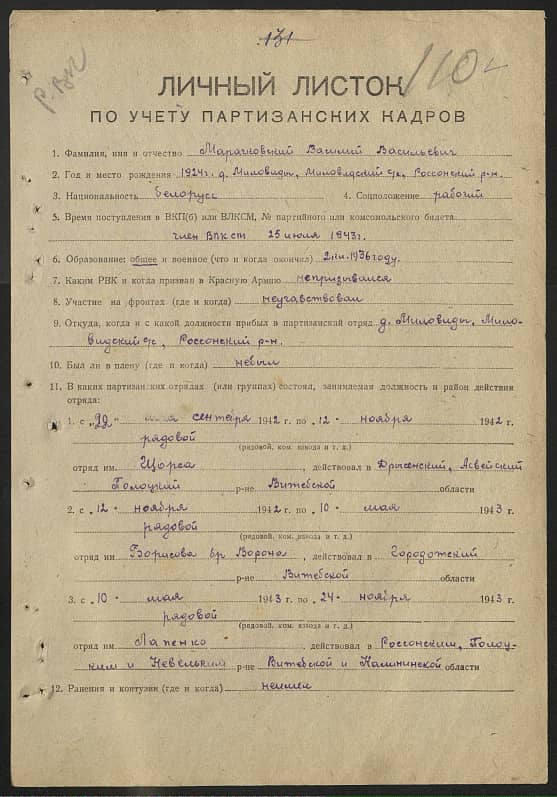 131
110
ЛИЧНЫЙ ЛИСТОК
ПО УЧЕТУ ПАРТИЗАНСКИХ КАДРОВ
1. Фамилия, имя и отчество Марачковский Василий Васильевич
2. Год и место рождения 1924 г. д. Миловиды, Миловидский с/с, Россонский р-н.
3. Национальность белорусс 4. Соцположение рабочий
5. Время поступления в ВКП(б) или ВЛКСМ, № партийного или комсомольского билета
член ВЛКСМ 25 июля 1943 г.
6. Образование: общее и военное (что и когда окончил) 1936 году.
7. Каким РВК и когда призван в Красную Армию непризывался
8. Участие на фронтах (где и когда) неучавствовал
9. Откуда, когда и с какой должности прибыл в партизанский отряд д. Миловиды, Мило-
видский с/с, Россонский р-н.
10. Был ли в плену (где и когда) небыл
11. В каких партизанских отрядах (или группах) состоял, занимаемая должность и район действия
отряда:
1. с „22" сентября 1942 г. по „12" ноября 1942 г.
рядовой
(рядовой, ком. взвода и т. д.)
отряд им. Щорса, действовал в Дрисенский, Асвейский
Полоцкий р-не Витебской области
2. с „12" ноября 1942 г. по „10" мая 1943 г.
рядовой
(рядовой, ком. взвода и т. д.)
отряд им Борисова бр Ворона, действовал в Городотский
р-не Витебской области
3. с „10" мая 1943 г. по „24" ноября 1943
рядовой
(рядовой, ком. взвода и т. д.)
отряд им. Лапенко, действовал в Россонским, Полоц-
ким и Невельким р-не Витебской и Калининской области
12. Ранения и контузии (где и когда) неимел